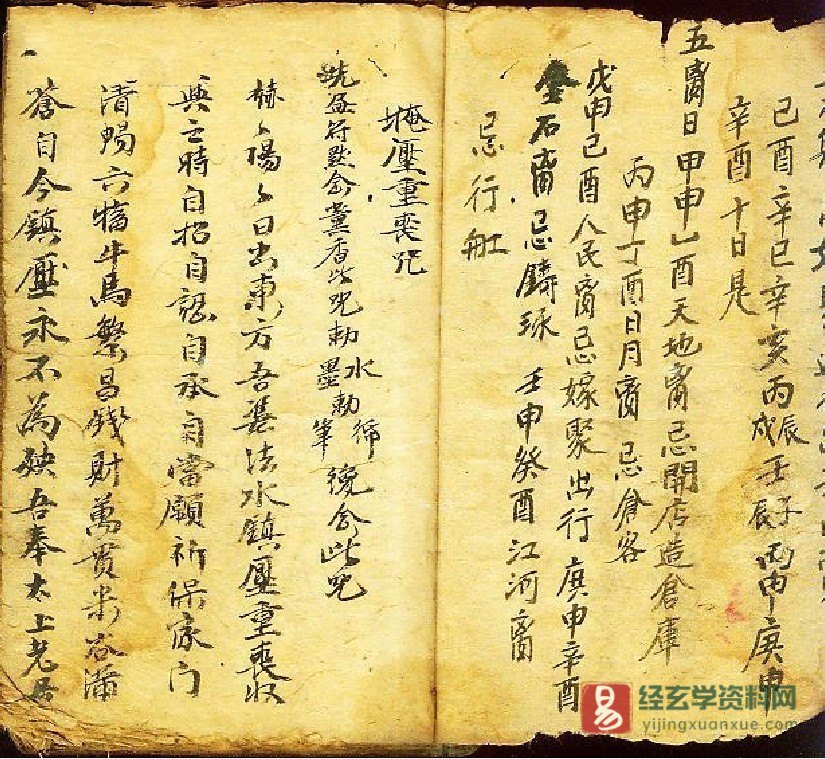 己酉辛巳辛亥丙辰戊辰壬子丙申庚申
辛酉十日是
五离日甲申乙酉天地离忌開店造倉庫
丙申丁酉日月离忌倉各
戊申己酉人民离忌嫁聚出行庚申辛酉
金石离忌鑄 壬申癸酉江河离
忌行舡
掩壓重喪咒
香此咒勅水勅墨勅筆 念此咒
赫〻陽〻日出東方吾 法水鎮壓重喪収
與亡時自招自 自承自當願祈保家门
清 六 牛馬繁昌錢財萬貫米谷滿
蒼自今鎮壓永不為殃吾奉太上老君
易 经玄学资料网
yijingxuanxue.com